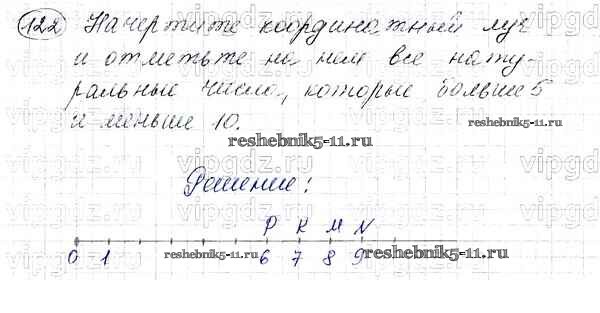 122 Начертите координатный луч
и отметьте на нем все нату-
ральные числа, которые больше 5
и меньше 10.
reshebnik5-11.ru
reshebnik5-11.ru
Решение:
P K M N
0 1 6 7 8 9
reshebnik5-11.ru
reshebnik5-11.ru
vipgdz.ru